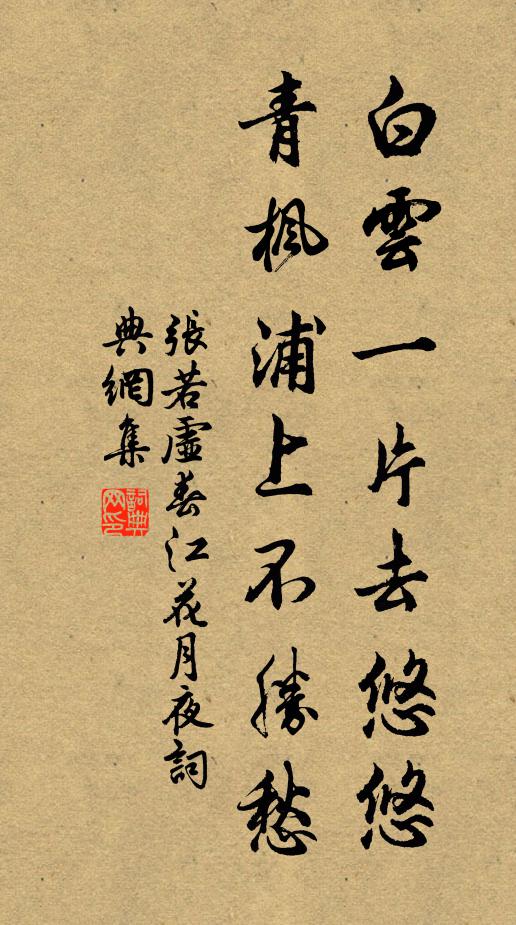 白雲一片去悠悠
青楓浦上不勝愁
張若虛春江花月夜詞
典網集
詞典
网印